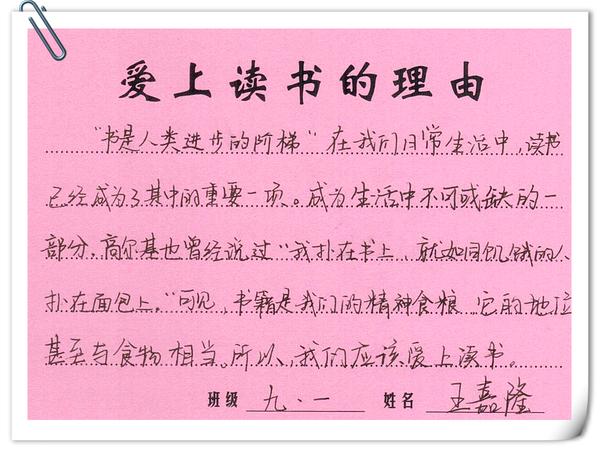 爱上读书的理由
“书是人类进步的阶梯”在我们日常生活中,读书
已经成为了其中的重要一项。成为生活中不可或缺的一
部分,高尔基也曾经说过“我扑在书上,就如同饥饿的人
扑在面包上。”可见,书籍是我们的精神食粮,它的地位
甚至与食物相当。所以,我们应该爱上读书。
班级 九.一 姓名 王嘉隆